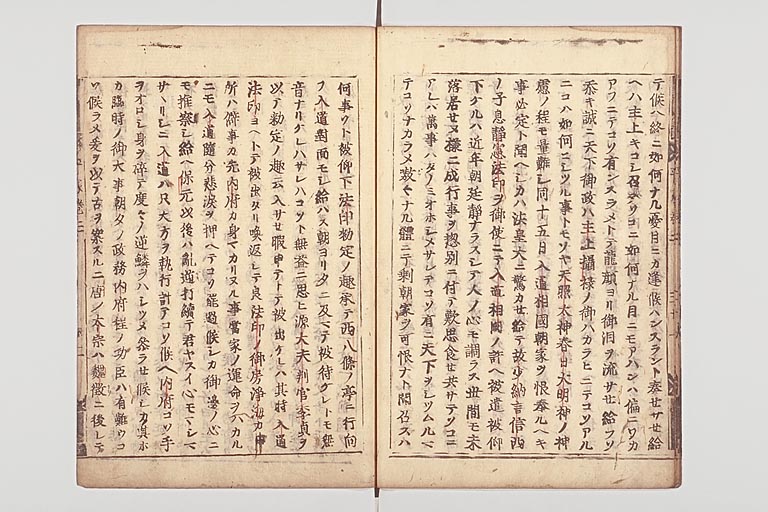 テ候ヘ終ニ如何ナル憂目ニカ逢候ハンスラント奏セサせ給
ヘハ主上キコシ召テワコニ如何ナル目ニモアハンハ偏ニワカ
アワニテコソ有ンスラメトテ龍顔ヨリ御泪ヲ流サせ給フソ
忝キ誠ニ天下御政ハ主上攝禄ノ御ハカラヒニテコソアル
ニコハ如何ニシツル事トモソヤ天照太神春日大明神ノ神
慮ノ程モ量難シ同十五日入道相國朝家ヲ恨奉ルヘキ
事必定ト聞ヘシカハ法皇大ニ驚カせ給テ故少納言信西
ノ子息静憲法印ヲ御使ニテ入道相國ノ許ヘ被遣被仰
下ケルハ近年朝廷静ナラスシテ人ノ心モ調ラス世間モ未
落居せヌ様ニ成行事ヲ惣別ニ付テ歎思食せ共サテソコニ
アレハ萬事ハタノミオホシメサレテコソ有ニ天下ヲシツムルマ
テコソナカラメ嗷々ナル體ニテ剰朝家ヲ可恨ナト聞召スハ
何事ソト被仰下法印勅定ノ趣承テ西八條ノ亭ニ行向
フ入道對面モシ給ハス朝ヨリタニ及マテ被待ケレトモ無
音ナリケレハサレハコソト無益ニ思ヒ源大夫判官季貞ヲ
以テ勅定ノ趣云入サせ暇申テトテ被出ケレハ其時入道
法印ヨヘトテ被出タリ喚返シテ良法印ノ御房浄海カ申
所ハ僻事カ先内府カ身マカリヌル事當家ノ運命ヲハカル
ニモ入道随分悲涙ヲ押ヘテコソ罷過候シカ御邊ノ心ニ
モ推察シ給ヘ保元以後ハ亂逆打續テ君ヤスイ心モマシマ
サヽリシニ入道ハ只大方ヲ執行計テコソ候ヘ内府コソ手
ヲオロシ身ヲ碎テ度々ノ逆鱗ヲハシツメ參ラせ候シカ其外
カ臨時ノ御大事朝夕ノ政務内府程ノ功臣ハ有難ウコ
ソ候ラメ爰ヲ以テ古ヲ案スルニ唐ノ太宗ハ魏徴ニ後レテ